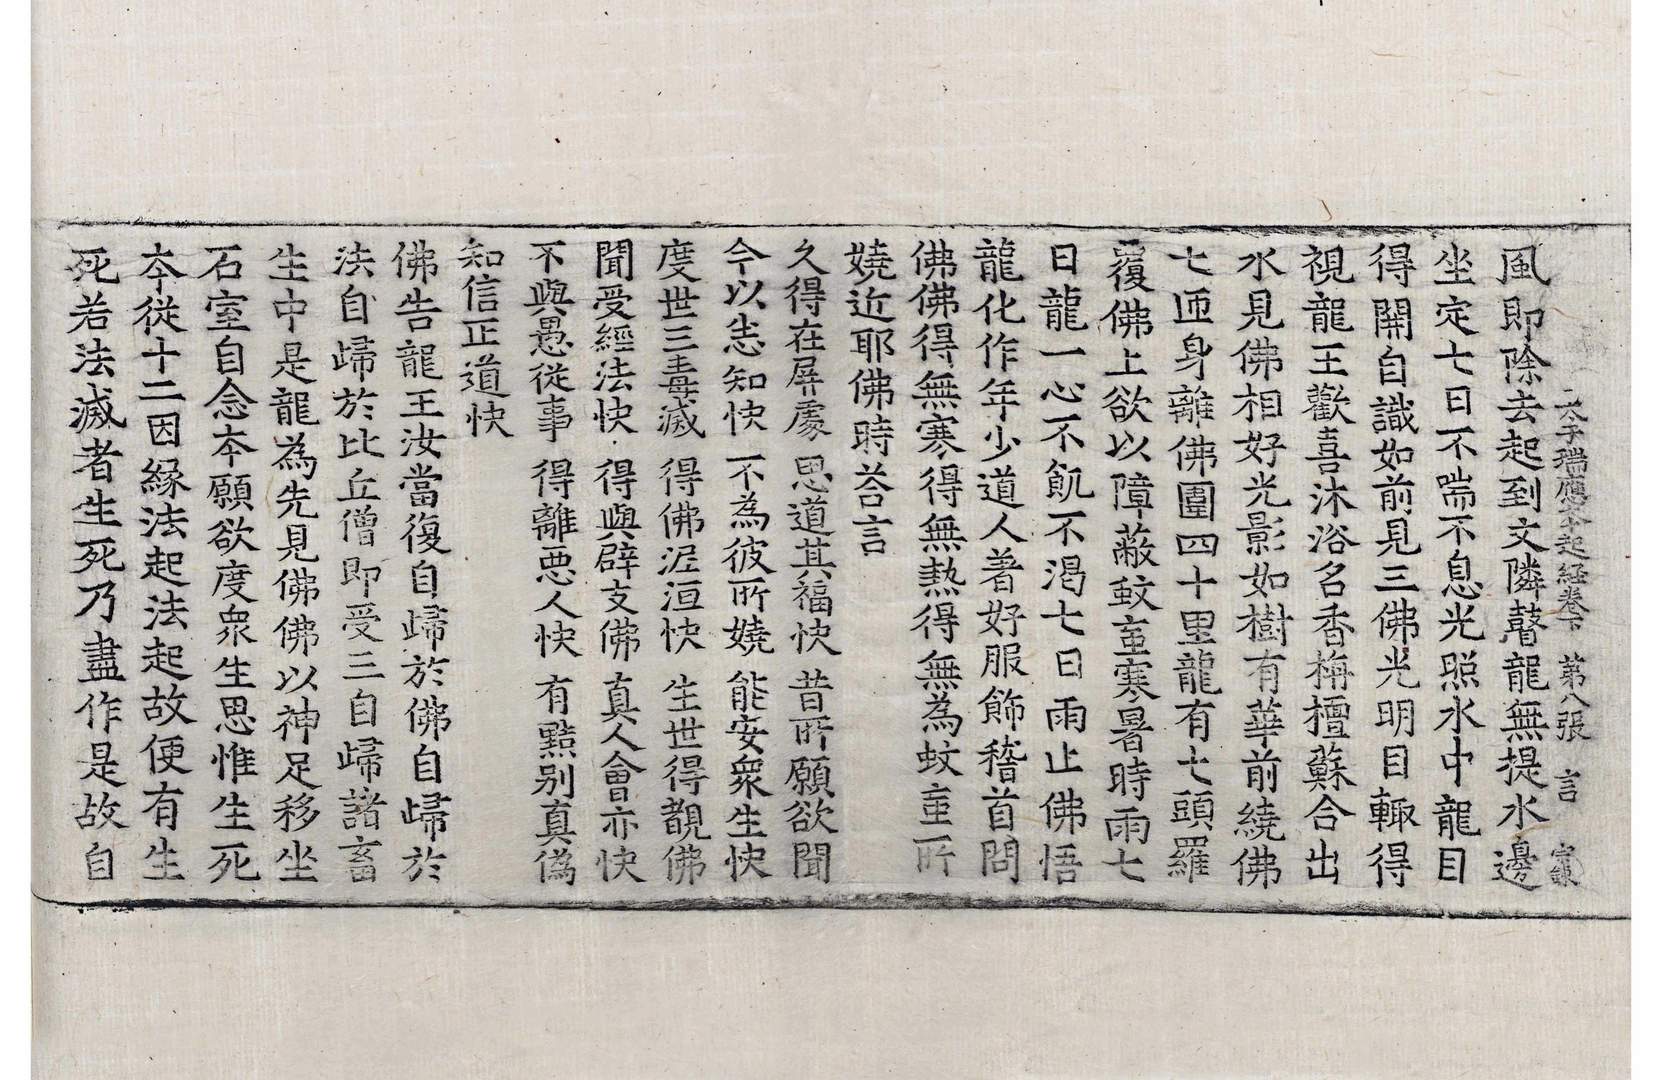 太子瑞應本起経卷下　第八張　言
風即除去起到文隣瞽龍無提水邊
坐定七日不喘不息光照水中龍目
得開自識如前見三佛光明目輙得
視龍王歡喜沐浴名香栴檀蘇合出
水見佛相好光影如樹有華前繞佛
七匝身離佛圍四十里龍有七頭羅
覆佛上欲以障蔽蚊䖟寒暑時雨七
日龍一心不飢不渴七日雨止佛悟
龍化作年少道人著好服飾稽首問
佛佛得無寒得無熱得無為蚊䖟所
嬈近耶佛時荅言
久得在屏處　思道其福快　昔所願欲聞
今以悉知快　不為彼所嬈　能安衆生快
度世三毒滅　得佛泥洹快　生世得覩佛
聞受經法快　得與辟支佛　真人會亦快
不與愚從事　得離悪人快　有黠別真偽
知信正道快
佛告龍王汝當復自歸於佛自歸於
法自歸於比丘僧即受三自歸諸畜
生中是龍為先見佛佛以神足移坐
石室自念本願欲度衆生思惟生死
本從十二因緣法起法起故便有生
死若法滅者生死乃盡作是故自